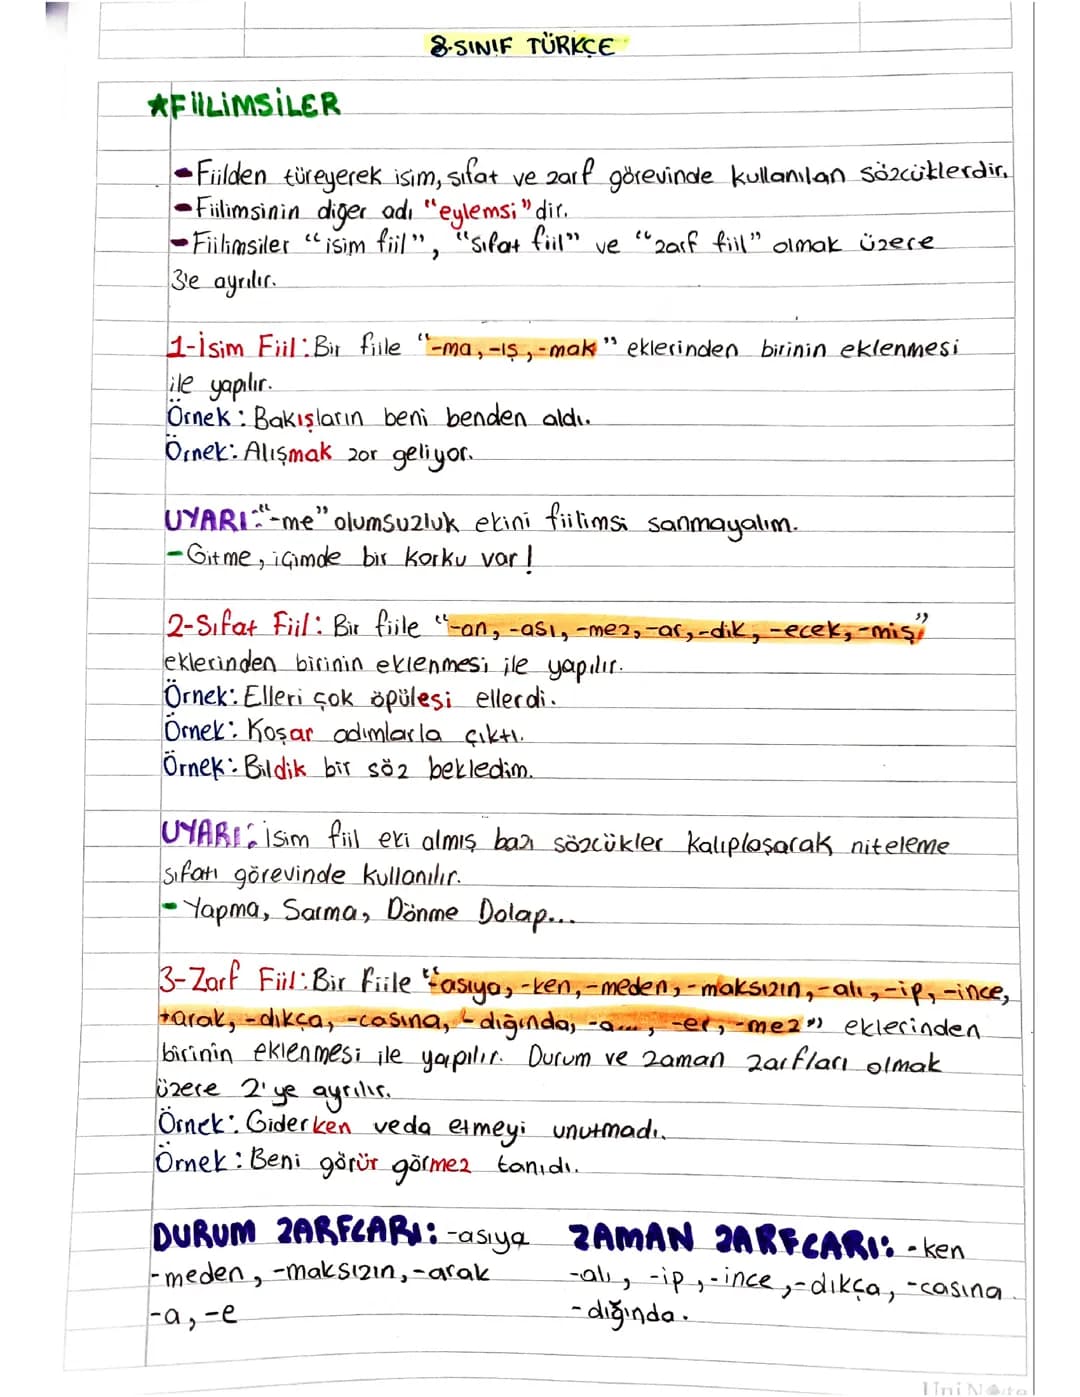 8.SINIF TÜRKÇE
★FİİLİMSİLER
- Fiilden türeyerek isim, sıfat ve zarf görevinde kullanılan sözcüklerdir.
- Fiilimsinin diğer adı "eylemsi" dir.
- Fiilimsiler "isim fiil", "sıfat fiil" ve "zarf fiil" olmak üzere
3'e ayrılır.
1-İsim Fiil: Bir fiile "-ma, -ış, -mak" eklerinden birinin eklenmesi
ile yapılır.
Örnek: Bakışların beni benden aldı.
Örnek: Alışmak zor geliyor.
UYARI: "-me" olumsuzluk ekini fiilimsi sanmayalım.
- Gitme, içimde bir korku var!
2-Sıfat Fiil: Bir fiile "-an, -ası, -mez, -ar, -dik, -ecek, -miş"
eklerinden birinin eklenmesi ile yapılır.
Örnek: Elleri çok öpülesi ellerdi.
Örnek: Koşar adımlarla çıktı.
Örnek: Bildik bir söz bekledim.
UYARI: İsim fiil eki almış bazı sözcükler kalıplaşarak niteleme
sıfatı görevinde kullanılır.
- Yapma, Sarma, Dönme Dolap...
3-Zarf Fiil: Bir fiile "-asıya, -ken, -meden, -maksızın, -alı, -ip, -ince,
-arak, -dıkça, -casına, -dığında, -a..., -er, -mez" eklerinden
birinin eklenmesi ile yapılır. Durum ve zaman zarfları olmak
üzere 2'ye ayrılır.
Örnek: Giderken veda etmeyi unutmadı.
Örnek: Beni görür görmez tanıdı.
DURUM ZARFLARI: -asıya
-meden, -maksızın, -arak
-a, -e
ZAMAN ZARFLARI: -ken
-alı, -ip, -ince, -dıkça, -casına
-dığında.